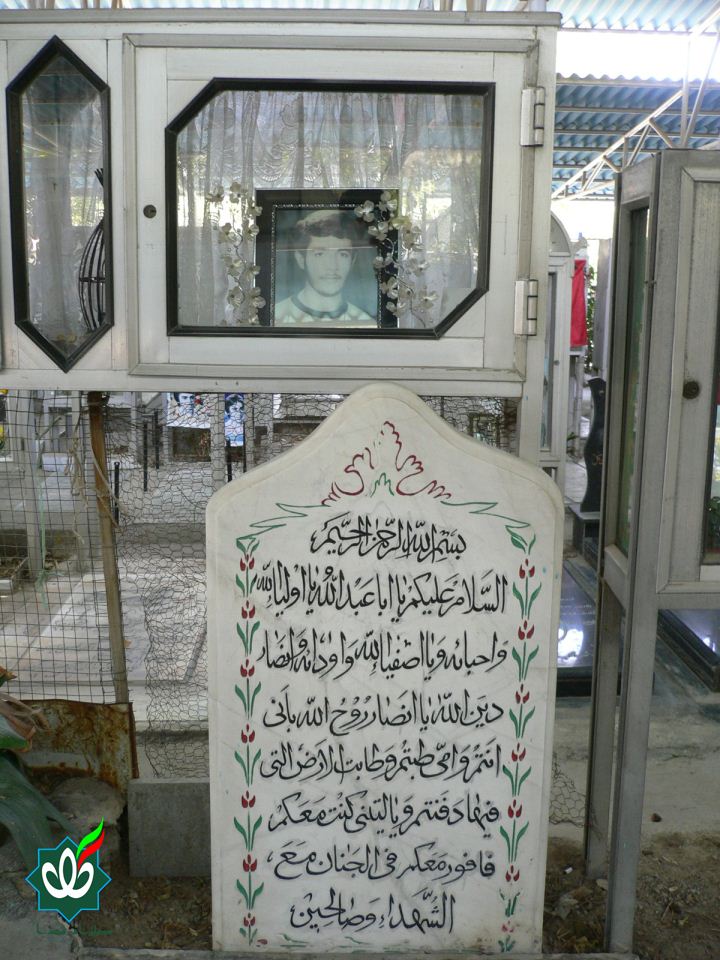 بسم الله الرحمن الرحیم
السلام علیکم یا ابا عبدالله یا اولیاء الله
و احبائه و یا اصفیاء الله و اودائه و انصار
دین الله یا انصار روح الله بابی
انتم و امی طبتم و طابت الارض التی
فیها دفنتم و یا لیتنی کنت معکم
فافوز معکم فی الجنان مع
الشهداء و صالحین